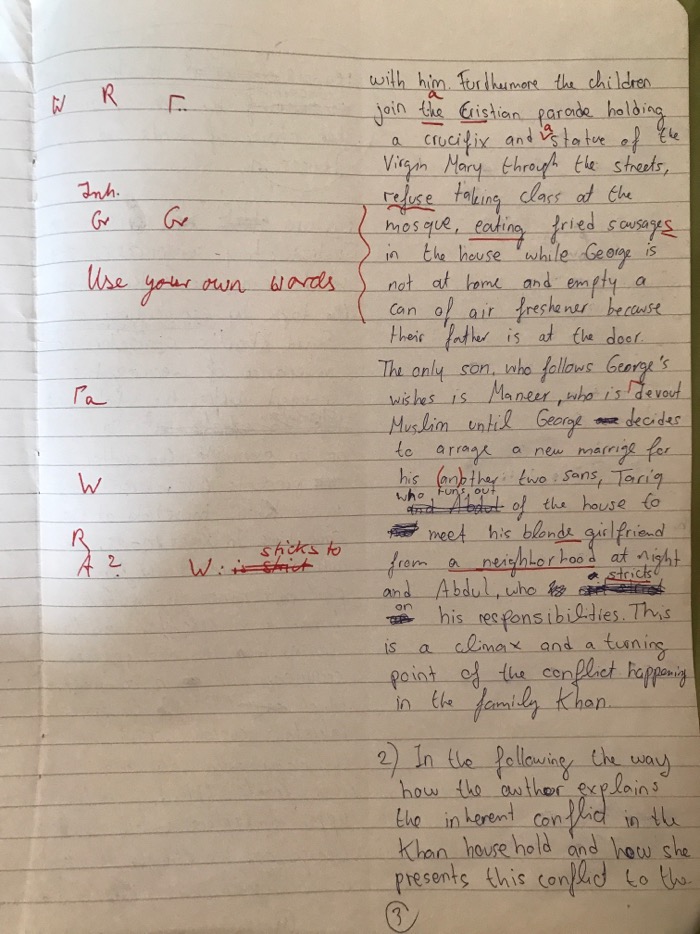 with him. Furthermore the children
W R Γ.. a
join the Cristian parade holding
a crucifix and a statue of the
Virgin Mary through the streets,
Inh. refuse taking class at the
Gr Gr mosque, eating fried sausages
in the house while George is
Use your own words not at home and empty a
can of air freshener because
their father is at the door.
The only son, who follows George's
wishes is Maneer, who is devout
Muslim until George decides
to arrage a new marrige for
W his (an)other two sons, Tariq
who runs out
and Abdul of the house to
R meet his blonde girlfriend
A? W: is strict sticks to from a neighborhood at night
and Abdul, who stricts
on his responsibilities. This
is a climax and a turning
point of the conflict happening
in the family Khan.
2) In the following the way
how the author explains
the inherent conflict in the
Khan household and how she
presents this conflict to the
3